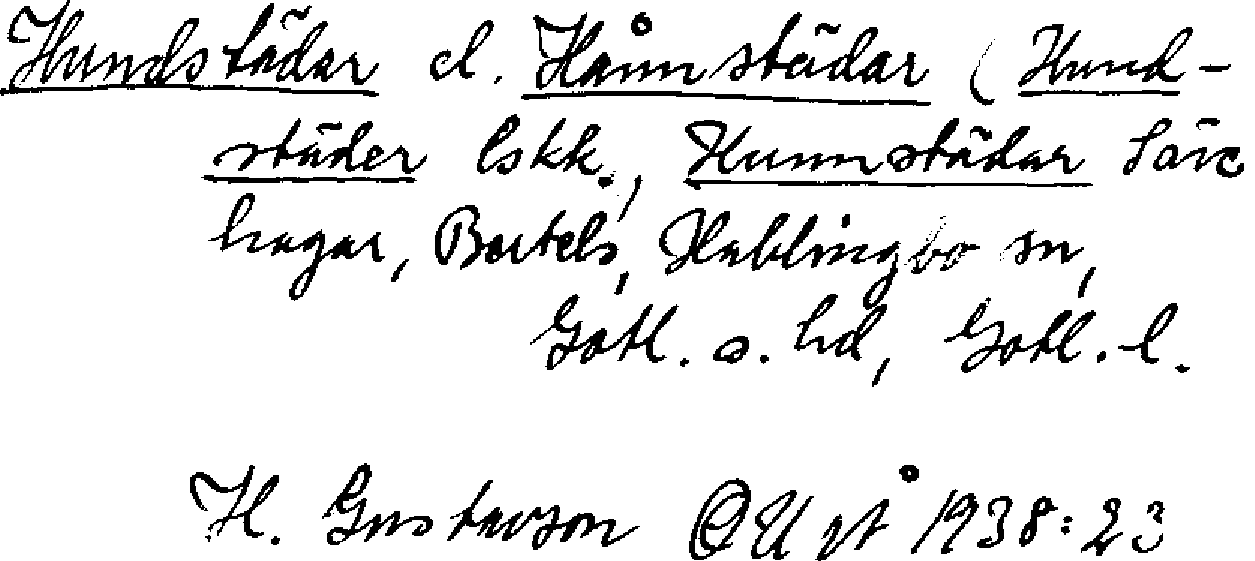 Hundstädar el. Hånnstädar (Hund-
städer Eskk., Hunnstädar Säve
hagar, Bertels, Hablingbo sn,
Gotl. s. hd, Gotl. l.
H. Gustavson 1938:23